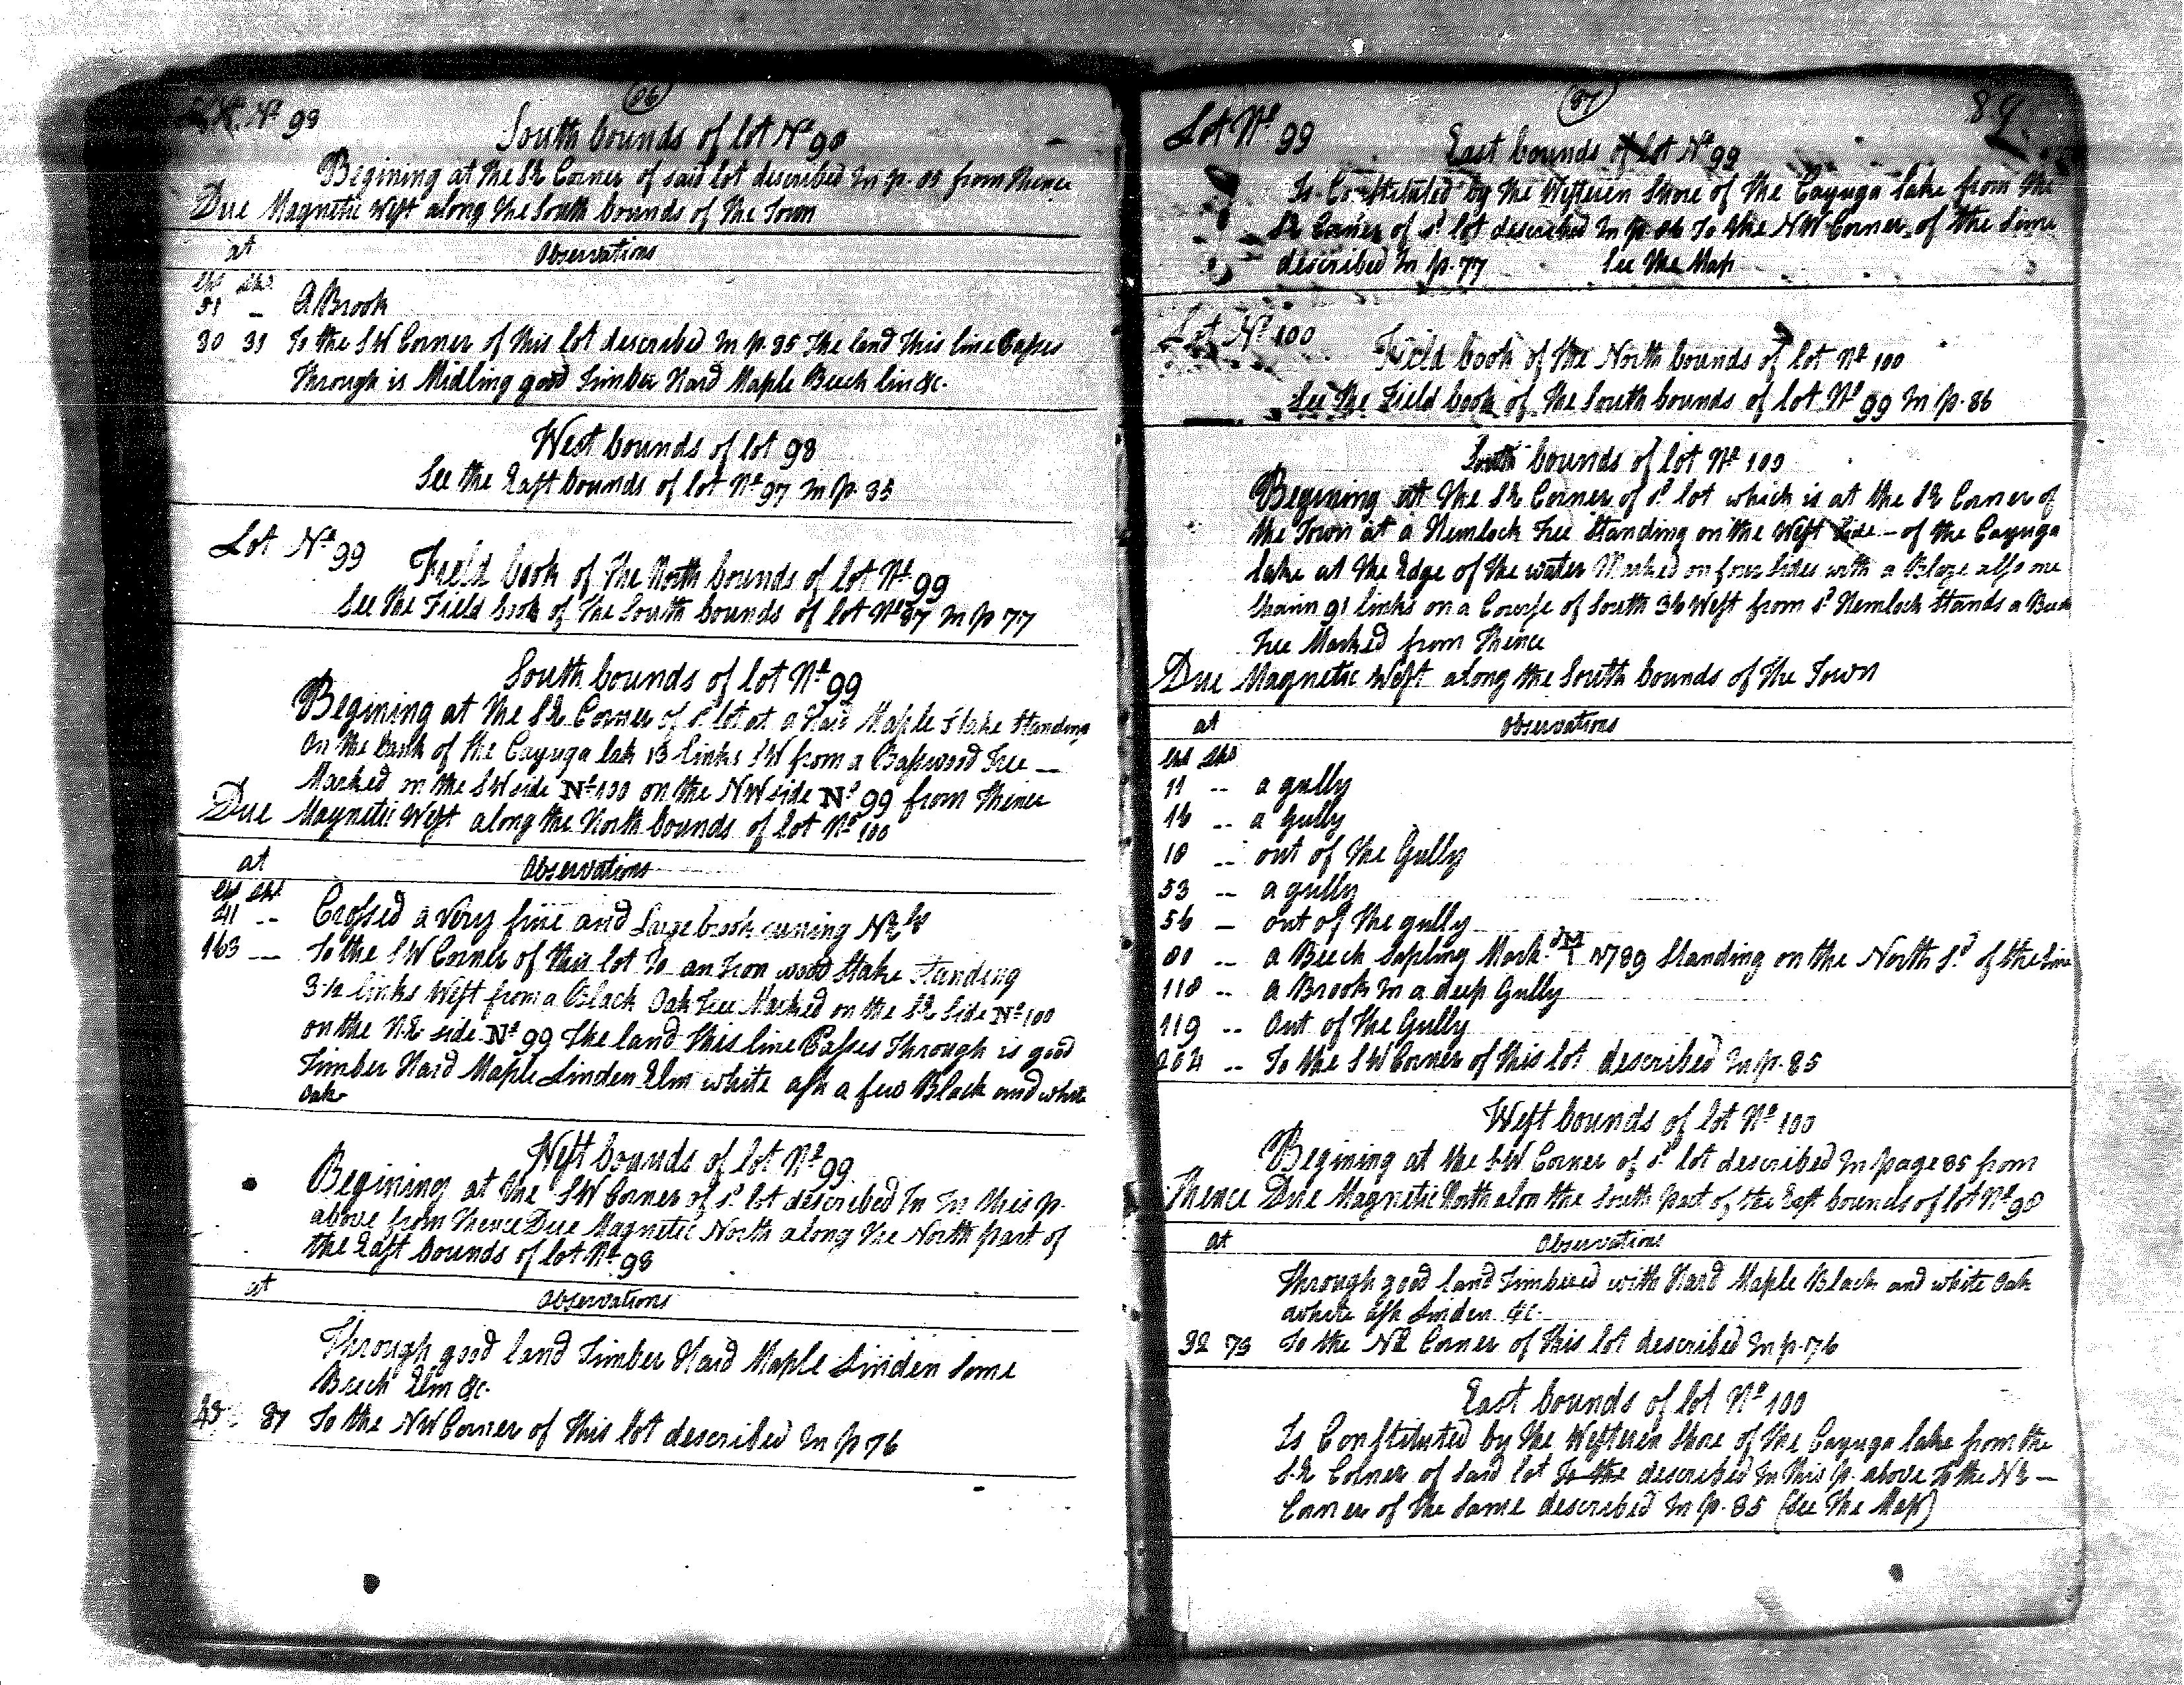 Lot Nº 98
86
South bounds of lot Nº 98
Begining at the SE Corner of said lot described In p. 85 from thence
Due Magnetic West along the South bounds of the Town
at Observations
Chs Lks
51 – A Brook
To the SW Corner of this lot described In p. 85 The land this line Passes
Through is Midling good Timber Hard Maple Beech lin &c.
West bounds of lot 98
See the East bounds of lot Nº 97 In p. 85
Lot Nº 99
Field book of the North bounds of lot Nº 99
See the Field book of the South bounds of lot Nº 87 In p 77
South bounds of lot Nº 99
Begining at the SE Corner of sd lot at a Hard Maple Stake Standing
On the bank of the Cayuga lak 13 links SW from a Basswood Tree —
Marked on the SW side Nº 100 on the NW side Nº 99 from thence
Due Magnetic West along the North bounds of lot Nº 100
at Observations
Chs Lks
41 -- Crossed a Very fine and Large brook runing NEly
163 -- To the SW Corner of this lot To an Iron wood Stake Standing
3½ links West from a Black Oak Tree Marked on the SE Side Nº 100
on the NE side Nº 99 The land This line Passes Through is good
Timber Hard Maple Linden Elm white ash a few Black and white
Oak
West bounds of lot Nº 99
Begining at the SW Corner of sd lot described In In this p.
above from thence Due Magnetic North along the North part of
the East bounds of lot Nº 98
at Observations
Through good land Timber Hard Maple Linden Some
Beech Elm &c.
To the NW Corner of this lot described In p 76
87
89
Lot Nº 99
East bounds of Lot Nº 99
Is Constituted by the Westeren Shore of the Cayuga lake from the
SE Corner of sd lot described In p. 86 To the NW Corner of the Same
described In p. 77 See the Map
Lot Nº 100
Field book of the North bounds of lot Nº 100
See the Field book of the South bounds of lot Nº 99 In p. 86
South bounds of lot Nº 100
Begining at the SE Corner of sd lot which is at the SE Corner of
the Town at a Hemlock Tree Standing on the West Side – of the Cayuga
lake at the Edge of the water Marked on four Sides with a Blaze also one
Chain 91 links on a Course of South 36 West from sd Hemlock Stands a Beech
Tree Marked from Thence
Due Magnetic West along the South bounds of the Town
at Observations
Chs Lks
11 -- a gully
16 -- a Gully
18 -- out of the Gully
53 -- a gully
56 – out of the gully
80 -- a Beech Sapling Mark.d 1M 1789 Standing on the North Sd of the line
118 -- a Brook In a deep Gully
119 -- Out of the Gully
204 -- To the SW Corner of this lot described In p. 85
West bounds of lot Nº 100
Begining at the SW Corner of sd lot described In page 85 from
Thence Due Magnetic North alon the South part of the East bounds of lot Nº 98
at Observations
Through good land Timbered with Hard Maple Black and white Oak
white Ash Linden &c.
To the NE Corner of this lot described In p. 76
East bounds of lot Nº 100
Is Constituted by the Westeren Shore of the Cayuga lake from the
SE Corner of Said lot To the described In this p. above To the NE —
Corner of the Same described In p. 85 (See the Map)